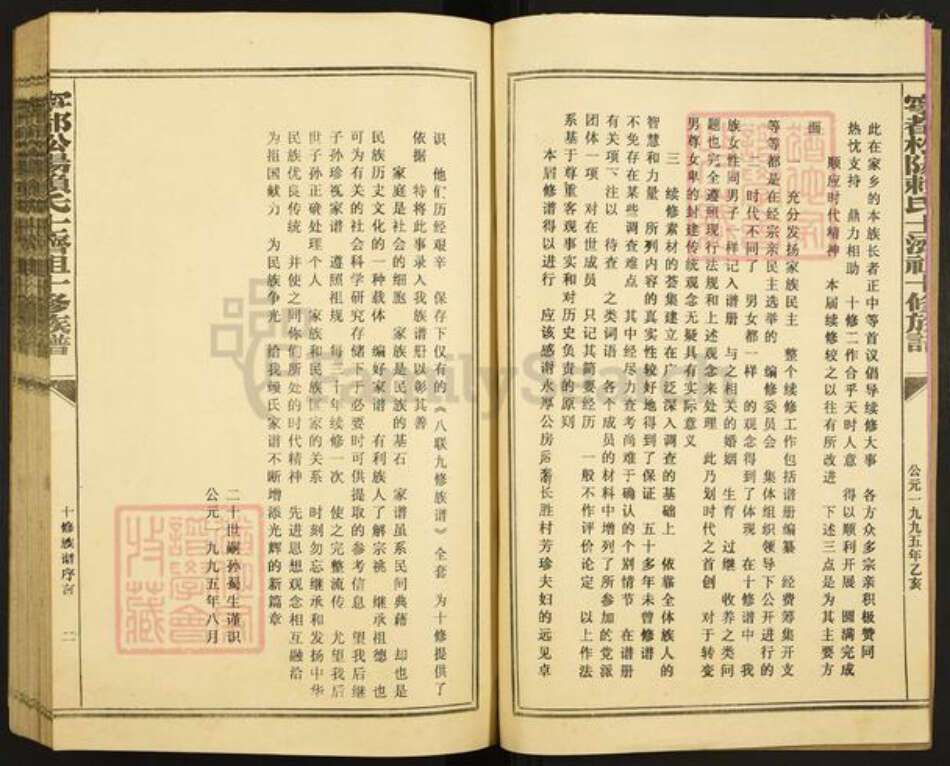 宁都松阳赖氏上济祖十修族谱
公元一九九五年乙亥
此在家乡的本族长者正中等首议倡导续修大事 各方众多宗亲积极赞同
热忱支持 鼎力相助 十修工作合乎天时人意 得以顺利开展 圆满完成
顺应时代精神 本届续修较之以往有所改进 下述三点是为其主要方
面
一 充分发扬家族民主 整个续修工作包括谱册编纂 经费筹集开支
等等都是在经宗亲民主选举的 编修委员会 集体组织领导下公开进行的
二 时代不同了 男女都一样 的观念得到了体现 在十修谱中 我
族女性同男子一样记入谱册 与之相关的婚姻 生育 过继 收养之类问
题也完全遵照现行法规和上述观念来处理 此乃划时代之首创 对于转变
男尊女卑的封建传统观念无疑具有实际意义
三 续修素材的荟集建立在广泛深入调查的基础上 依靠全体族人的
智慧和力量 所列内容的真实性较好地得到了保证 五十多年未曾修谱
不免存在某些调查难点 其中经尽力查考尚难于确认的个别情节 在谱册
有关项下注以 待查 之类词语 各个成员的材料中增列了所参加的党派
团体一项 对在世成员 只记其简要经历 一般不作评价论定 以上作法
系基于尊重客观事实和对历史负责的原则
本届修谱得以进行 应该感谢永厚公房 长胜村芳珍夫妇的远见卓
识 他们历经艰辛 保存下仅有的《八联九修族谱》全套 为十修提供了
依据 特将此事录入我族谱册以彰其善
家庭是社会的细胞 家族是民族的基石 家谱虽系民间典藉 却也是
民族历史文化的一种载体 编好家谱 有利族人了解宗祧 继承祖德 也
可为有关的社会科学研究存储下于必要时可供提取的参考信息 望我后继
子孙珍视家谱 遵照祖规 每三十年续修一次 使之完整流传 尤望我后
世子孙正确处理个人 家族和民族国家的关系 时刻勿忘继承和发扬中华
民族优良传统 并使之同你们所处的时代精神 先进思想观念相互融洽
为祖国献力 为民族争光 给我赖氏家谱不断增添光辉的新篇章
二十世嗣孙蜀生谨识
公元一九九五年八月
宁都松阳赖氏上济祖十修族谱
十修族谱序言 二
FamilySearch